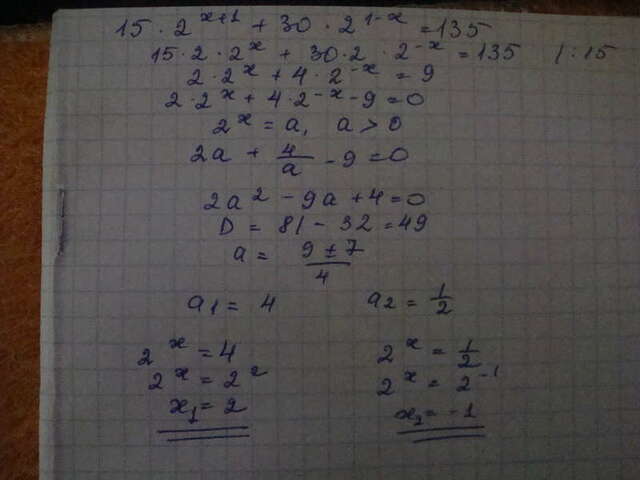 15 · 2^{x+1} + 30 · 2^{1-x} = 135
15 · 2 · 2^x + 30 · 2 · 2^{-x} = 135 | : 15
2 · 2^x + 4 · 2^{-x} = 9
2 · 2^x + 4 · 2^{-x} - 9 = 0
2^x = a, a > 0
2a + 4/a - 9 = 0
2a^2 - 9a + 4 = 0
D = 81 - 32 = 49
a = (9 ± 7)/4
a_1 = 4 a_2 = 1/2
2^x = 4 2^x = 1/2
2^x = 2^2 2^x = 2^{-1}
x_1 = 2 x_2 = -1